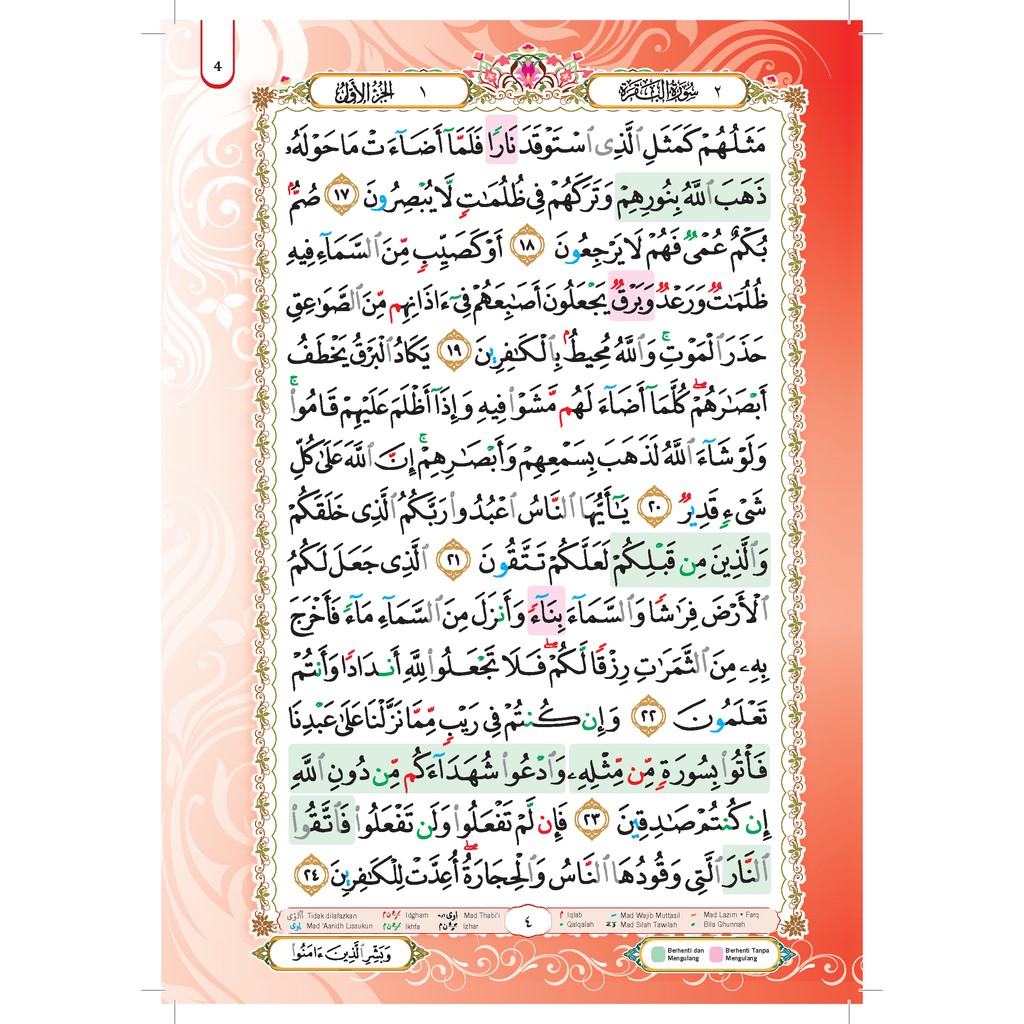 4
٢ سورة البقرة
١ الجزء الأول
مَثَلُهُمْ كَمَثَلِ ٱلَّذِى ٱسْتَوْقَدَ نَارًا فَلَمَّآ أَضَآءَتْ مَا حَوْلَهُۥ
ذَهَبَ ٱللَّهُ بِنُورِهِمْ وَتَرَكَهُمْ فِى ظُلُمَـٰتٍ لَّا يُبْصِرُونَ ١٧ صُمٌّۢ
بُكْمٌ عُمْىٌ فَهُمْ لَا يَرْجِعُونَ ١٨ أَوْ كَصَيِّبٍ مِّنَ ٱلسَّمَآءِ فِيهِ
ظُلُمَـٰتٌ وَرَعْدٌ وَبَرْقٌ يَجْعَلُونَ أَصَـٰبِعَهُمْ فِىٓ ءَاذَانِهِم مِّنَ ٱلصَّوَٰعِقِ
حَذَرَ ٱلْمَوْتِ ۚ وَٱللَّهُ مُحِيطٌۢ بِٱلْكَـٰفِرِينَ ١٩ يَكَادُ ٱلْبَرْقُ يَخْطَفُ
أَبْصَـٰرَهُمْ ۖ كُلَّمَآ أَضَآءَ لَهُم مَّشَوْا۟ فِيهِ وَإِذَآ أَظْلَمَ عَلَيْهِمْ قَامُوا۟ ۚ
وَلَوْ شَآءَ ٱللَّهُ لَذَهَبَ بِسَمْعِهِمْ وَأَبْصَـٰرِهِمْ ۚ إِنَّ ٱللَّهَ عَلَىٰ كُلِّ
شَىْءٍ قَدِيرٌ ٢٠ يَـٰٓأَيُّهَا ٱلنَّاسُ ٱعْبُدُوا۟ رَبَّكُمُ ٱلَّذِى خَلَقَكُمْ
وَٱلَّذِينَ مِن قَبْلِكُمْ لَعَلَّكُمْ تَتَّقُونَ ٢١ ٱلَّذِى جَعَلَ لَكُمُ
ٱلْأَرْضَ فِرَٰشًا وَٱلسَّمَآءَ بِنَآءً وَأَنزَلَ مِنَ ٱلسَّمَآءِ مَآءً فَأَخْرَجَ
بِهِۦ مِنَ ٱلثَّمَرَٰتِ رِزْقًا لَّكُمْ ۖ فَلَا تَجْعَلُوا۟ لِلَّهِ أَندَادًا وَأَنتُمْ
تَعْلَمُونَ ٢٢ وَإِن كُنتُمْ فِى رَيْبٍ مِّمَّا نَزَّلْنَا عَلَىٰ عَبْدِنَا
فَأْتُوا۟ بِسُورَةٍ مِّن مِّثْلِهِۦ وَٱدْعُوا۟ شُهَدَآءَكُم مِّن دُونِ ٱللَّهِ
إِن كُنتُمْ صَـٰدِقِينَ ٢٣ فَإِن لَّمْ تَفْعَلُوا۟ وَلَن تَفْعَلُوا۟ فَٱتَّقُوا۟
ٱلنَّارَ ٱلَّتِى وَقُودُهَا ٱلنَّاسُ وَٱلْحِجَارَةُ ۖ أُعِدَّتْ لِلْكَـٰفِرِينَ ٢٤
Tidak dilafazkan Idgham Mad Thabi'i ٤ Iqlab Mad Wajib Muttasil Mad Lazim • Farq
Mad 'Aaridh Lissukun Ikhfa Izhar Qalqalah Mad Silah Tawilah Bila Ghunnah
وَبَشِّرِ ٱلَّذِينَ ءَامَنُوا۟
Berhenti dan Mengulang
Berhenti Tanpa Mengulang